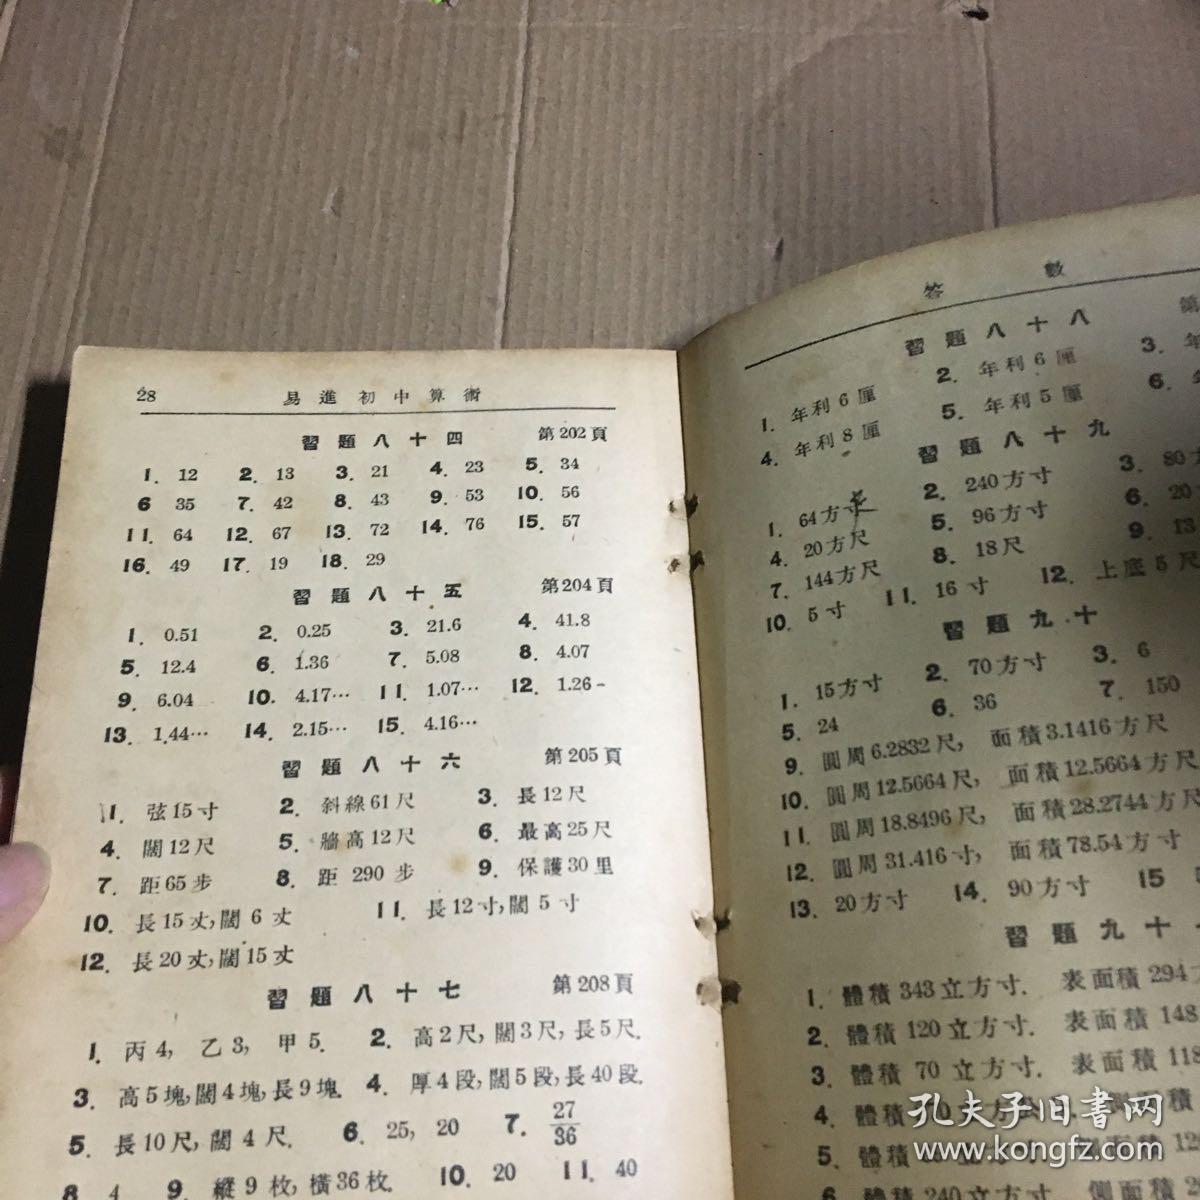 28 易進初中算術
習題八十四 第202頁
1. 12 2. 13 3. 21 4. 23 5. 34
6 35 7. 42 8. 43 9. 53 10. 56
11. 64 12. 67 13. 72 14. 76 15. 57
16. 49 17. 19 18. 29
習題八十五 第204頁
1. 0.51 2. 0.25 3. 21.6 4. 41.8
5. 12.4 6. 1.36 7. 5.08 8. 4.07
9. 6.04 10. 4.17… 11. 1.07… 12. 1.26
13. 1.44… 14. 2.15… 15. 4.16…
習題八十六 第205頁
1. 弦15寸 2. 斜線61尺 3. 長12尺
4. 闊12尺 5. 牆高12尺 6. 最高25尺
7. 距65步 8. 距 290 步 9. 保護30里
10. 長15丈,闊 6 丈 11. 長12寸,闊 5 寸
12. 長20丈,闊15丈
習題八十七 第208頁
1. 丙4, 乙3, 甲5. 2. 高2尺,闊3尺,長5尺.
3. 高5塊,闊4塊,長9塊. 4. 厚4段,闊5段,長40段.
5. 長10尺,闊 4 尺. 6. 25, 20 7. 27/36
8. 4 9. 縱9枚,橫36枚. 10. 20 11. 40
答 數
習題八十八 第
1. 年利6厘 2. 年利6厘 3. 年
4. 年利8厘 5. 年利5厘 6.
習題八十九
1. 64方寸 2. 240方寸 3. 80方
4. 20方尺 5. 96方寸 6. 20
7. 144方尺 8. 18尺 9. 13
10. 5寸 11. 16寸 12. 上底5尺
習題九十
1. 15方寸 2. 70方寸 3. 6
5. 24 6. 36 7. 150
9. 圓周6.2832尺, 面積3.1416方尺
10. 圓周12.5664尺, 面積12.5664方尺
11. 圓周18.8496尺, 面積28.2744方尺
12. 圓周31.416寸, 面積78.54方寸
13. 20方寸 14. 90方寸 15
習題九十
1. 體積343立方寸. 表面積294
2. 體積120立方寸. 表面積148
3. 體積 70 立方寸. 表面積118
4. 體積
5. 體積
6. 體積240立方寸. 側面積
孔夫子旧書网
www.kongfz.com